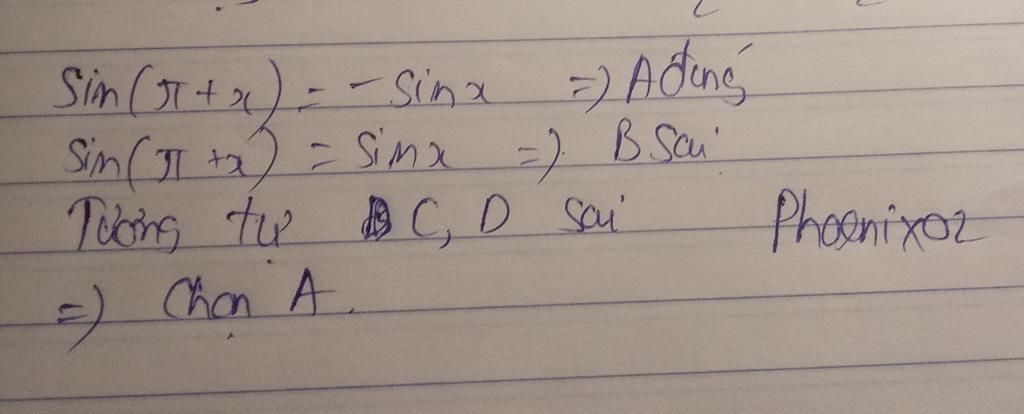 Sin(π + x) = - Sinx => A đúng
Sin(π + x) = Sinx => B Sai
Tương tự C, D Sai Phoenix02
=) Chọn A.